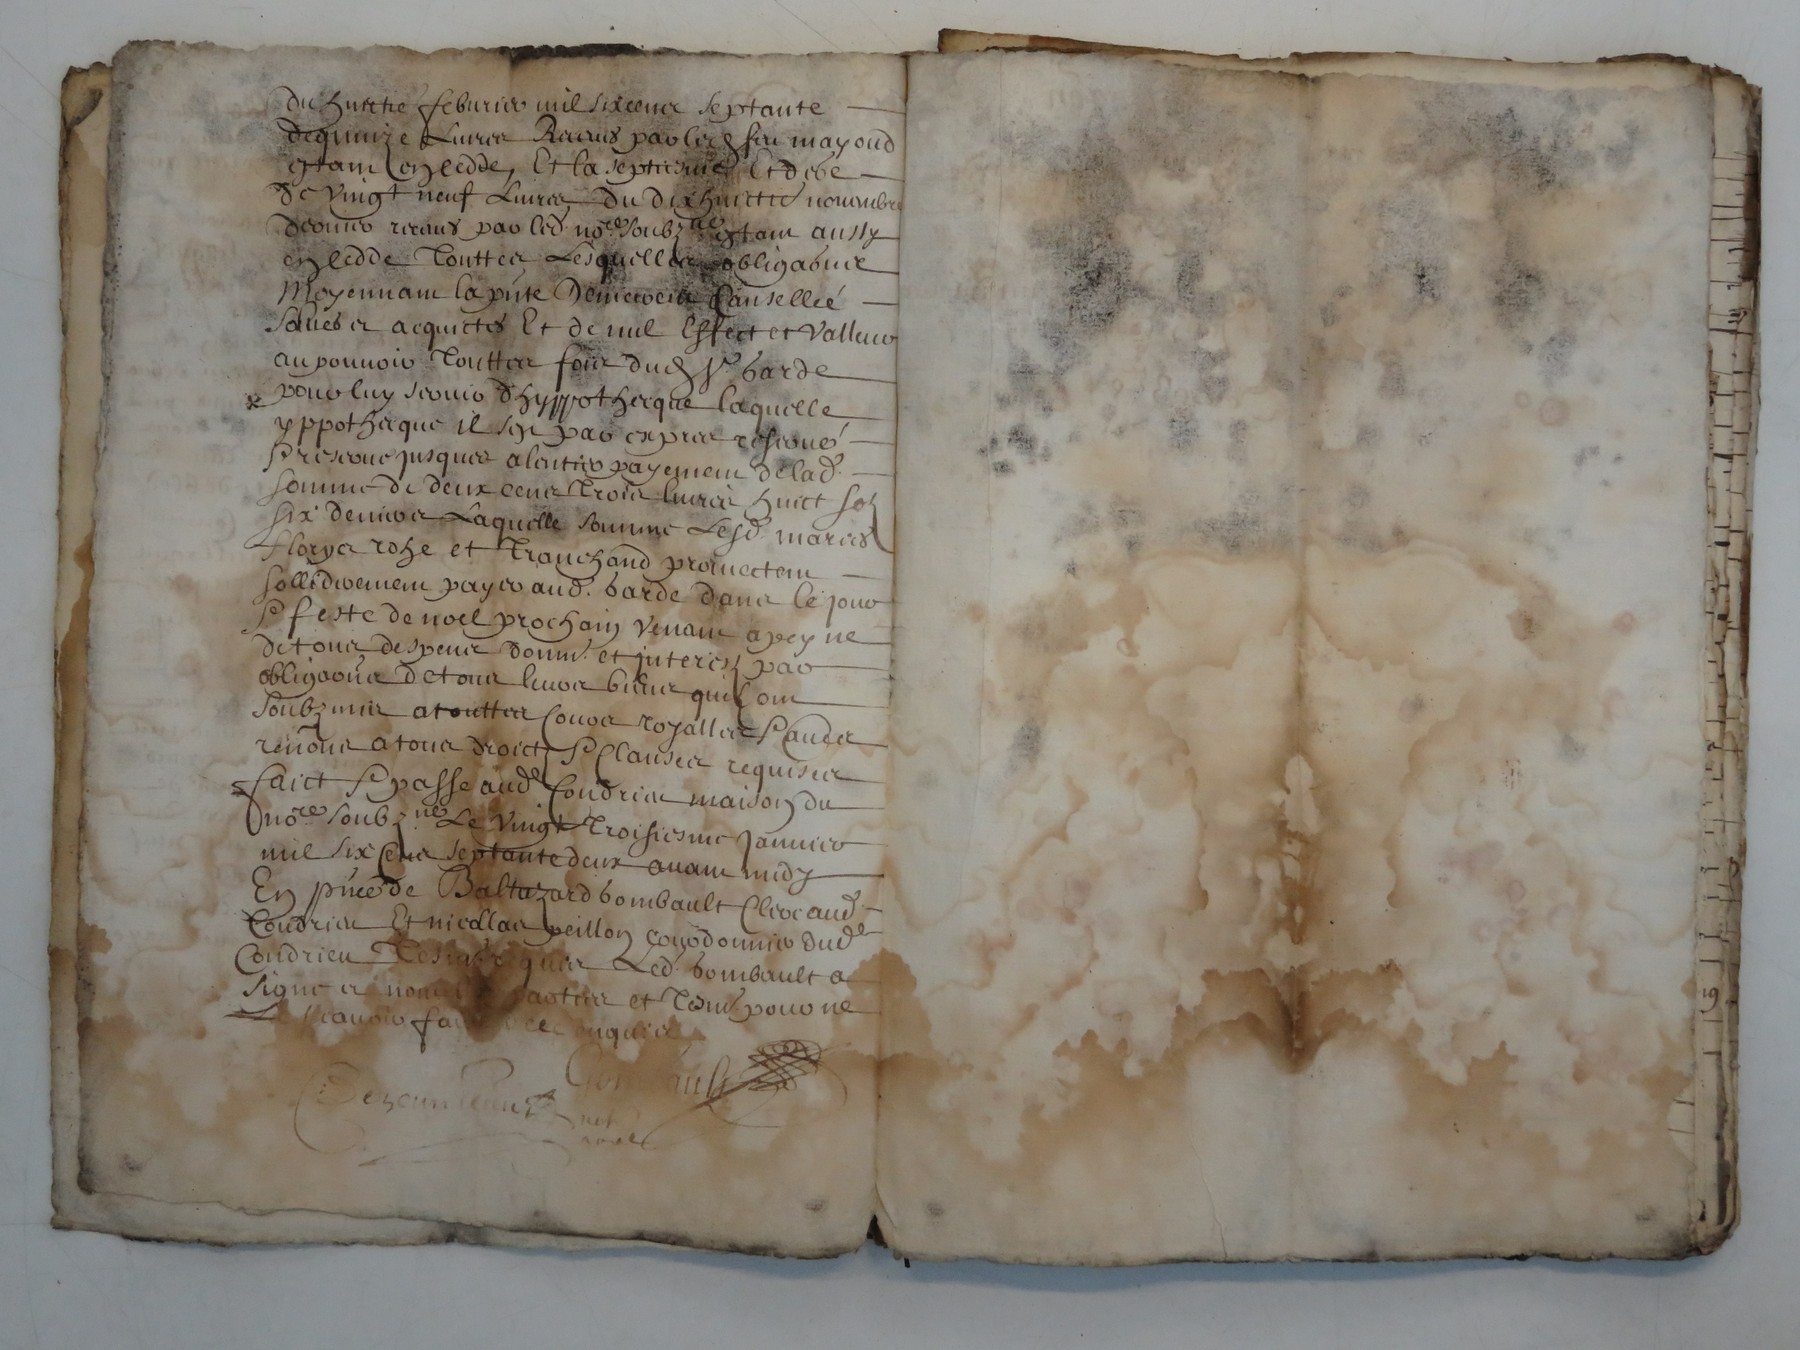 du huictie feburier mil six cens septante
de quinze Livres Receus par led feu mayoud
estant en cedde, Et la septiesme Et der
de Vingt neuf Livres du dixhuictie nouembre
dernier receus par led. nore soubzne estant aussy
en cedde Touttes Lesquelles obligaons
Moyennant la pnte demeurent Cansellee
solues et acquictes Et de nul Effect et Valleur
au pouuoir Touttes fois dud Sr barde
pour luy seruir d'hyppothecque laquelle
yppothecque il s'est par expres reserue
& reserue jusques a lentier payement de lad.
somme de deux cens Trois liures huict solz
six deniers Laquelle somme Lesd. maries
Floryes roze et Tranchand promectent
sollidairement payer aud. barde dans le jour
& feste de noel prochain Venant a peyne
de tous despens doms. et interestz par
obligaons de tous leurs biens quilz ont
soubzmis a touttes Cours royalles & andes
renons a tous droictz & Clauses requises
faict & passe aud Condrieu maison du
nore soubzne Le Vingt Troisiesme Januier
mil six Cens septante deux auant midy
En pnce de Baltazard bombault Clerc aud
Condrieu Et nicollas peillon cordonnier dud
Condrieu Tesmoings requis Led. bombault a
signe et non les parties et Tesm. pour ne
Le scauoir faire de ce enquis
Bombault
not